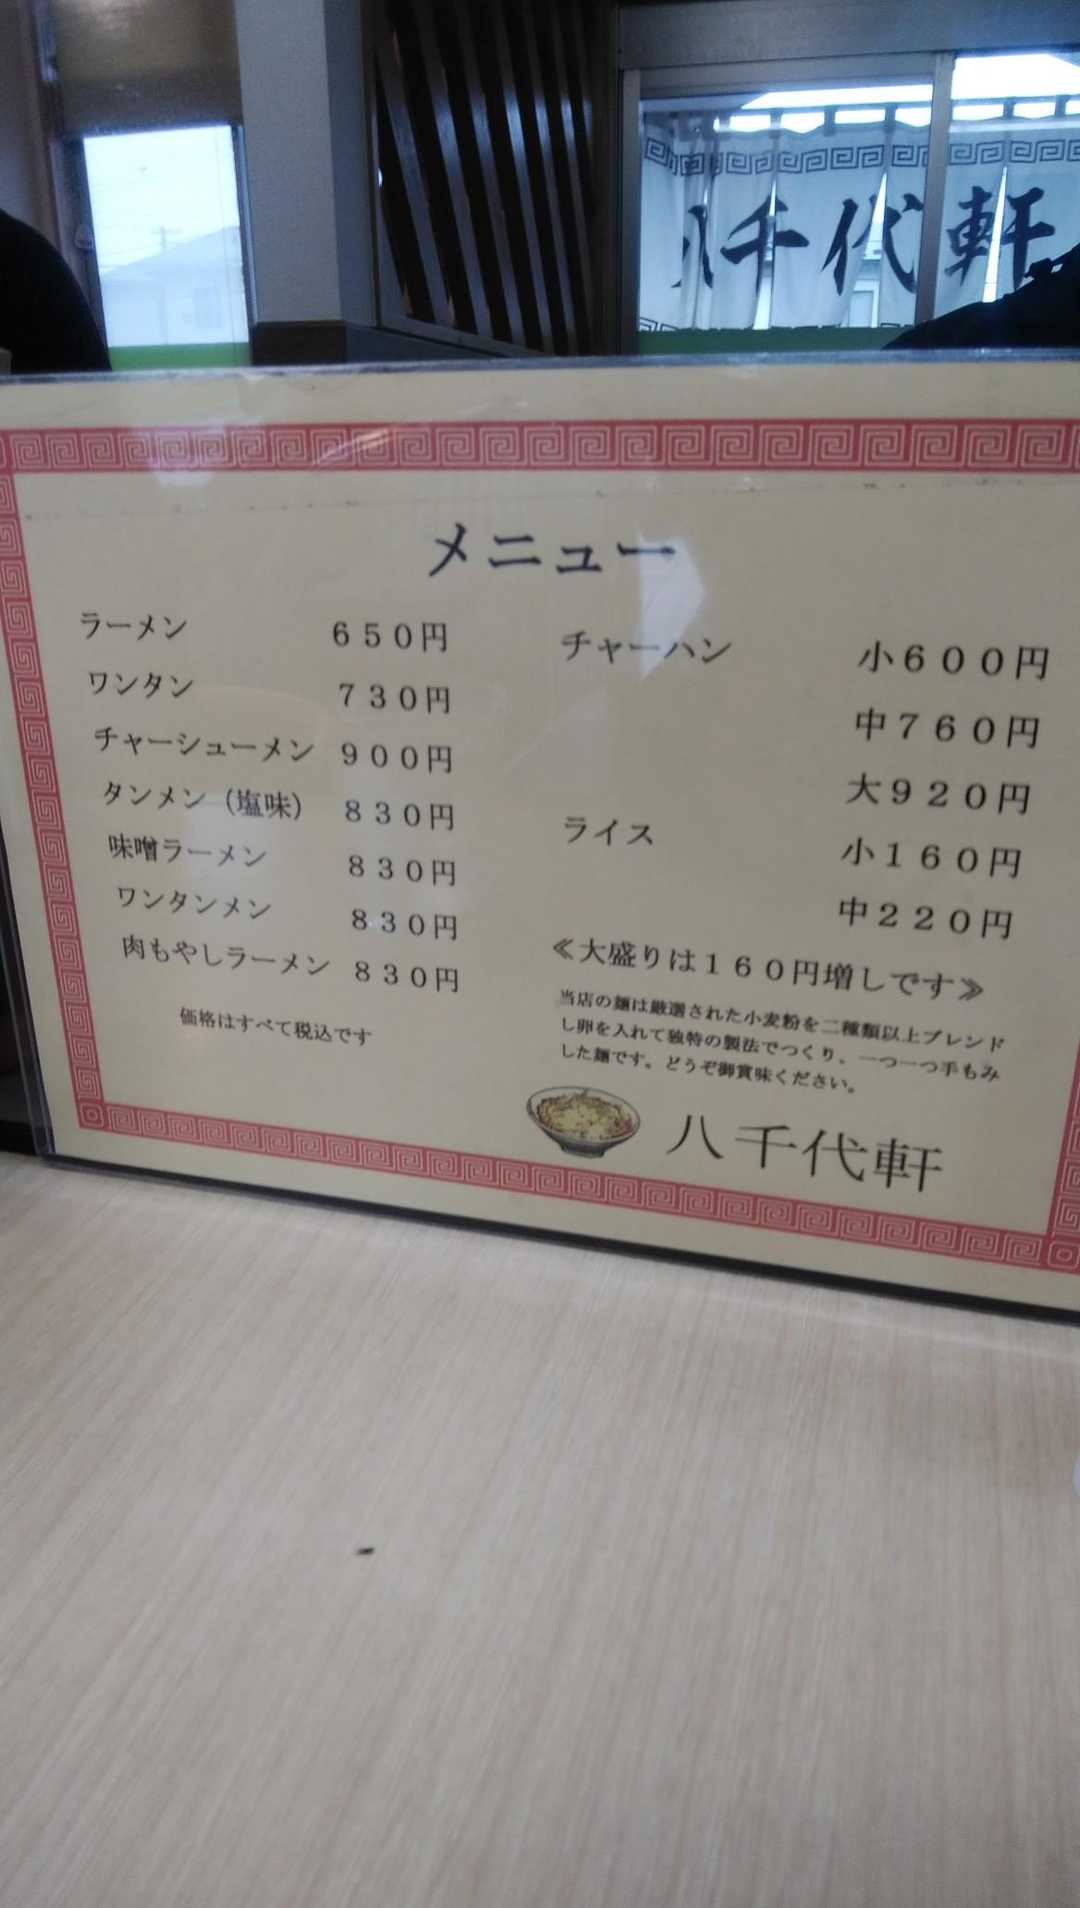 千代軒
メニュー
ラーメン 650円
ワンタン 730円
チャーシューメン 900円
タンメン（塩味） 830円
味噌ラーメン 830円
ワンタンメン 830円
肉もやしラーメン 830円
価格はすべて税込です
チャーハン 小600円
中760円
大920円
ライス 小160円
中220円
≪大盛りは160円増しです≫
当店の麺は厳選された小麦粉を二種類以上ブレンド
し卵を入れて独特の製法でつくり、一つ一つ手もみ
した麺です。どうぞ御賞味ください。
八千代軒